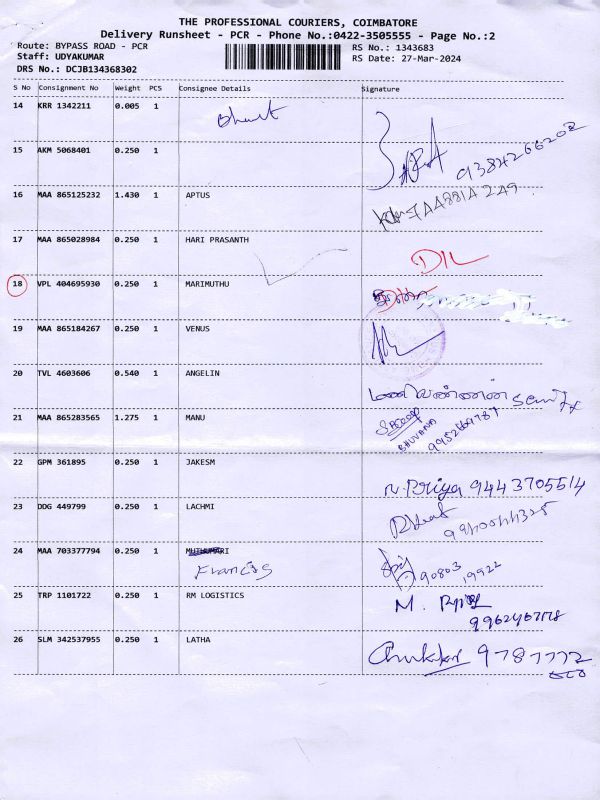 THE PROFESSIONAL COURIERS, COIMBATORE
Delivery Runsheet - PCR - Phone No.:0422-3505555 - Page No.:2
Route: BYPASS ROAD - PCR
Staff: UDYAKUMAR
DRS No.: DCJB134368302
RS No.: 1343683
RS Date: 27-Mar-2024
S No Consignment No Weight PCS Consignee Details Signature
14 KRR 1342211 0.005 1
15 AKM 5068401 0.250 1
9384266202
16 MAA 865125232 1.430 1 APTUS
17 MAA 865028984 0.250 1 HARI PRASANTH
D/L
18 VPL 404695930 0.250 1 MARIMUTHU
19 MAA 865184267 0.250 1 VENUS
20 TVL 4603606 0.540 1 ANGELIN
21 MAA 865283565 1.275 1 MANU
BHUVANA
22 GPM 361895 0.250 1 JAKESM
N. Priya 9443705514
23 DDG 449799 0.250 1 LACHMI
24 MAA 703377794 0.250 1
Francis
90803 19922
25 TRP 1101722 0.250 1 RM LOGISTICS
M.
26 SLM 342537955 0.250 1 LATHA
9787772